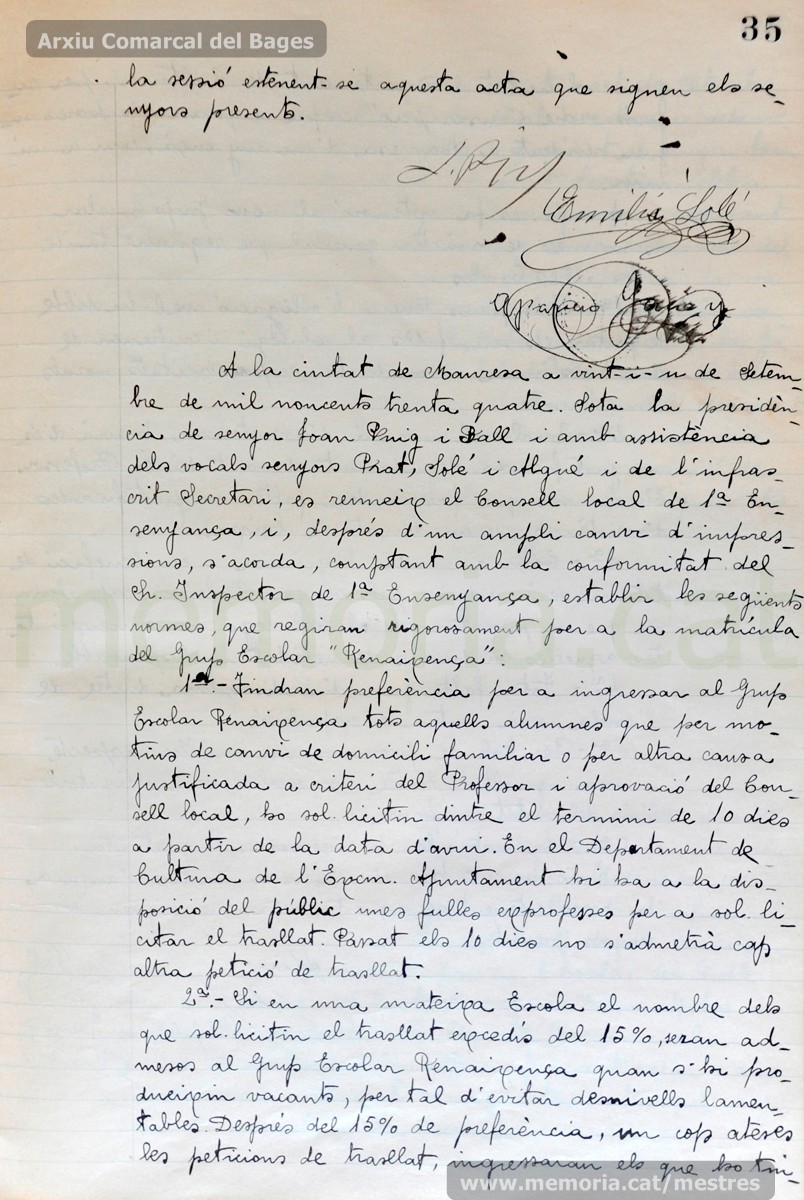 Arxiu Comarcal del Bages
35
la sessió estenent-se aquesta acta que signen els se-
nyors presents.
Emilià Solé
Aparicio
A la ciutat de Manresa a vint-i-u de Setem-
bre de mil noucents trenta quatre. Sota la presidèn-
cia de senyor Joan Puig i Pall i amb assistència
dels vocals senyors Prat, Solé i Algué i de l'infras-
crit Secretari, es reuneix el Consell local de 1ª En-
senyança, i, després d'un ampli canvi d'impres-
sions, s'acorda, comptant amb la conformitat del
Sr. Inspector de 1ª Ensenyança, establir les següents
normes, que regiran rigorosament per a la matrícula
del Grup Escolar "Renaixença":
1ª.- Tindran preferència per a ingressar al Grup
Escolar Renaixença tots aquells alumnes que per mo-
tius de canvi de domicili familiar o per altra causa
justificada a criteri del Professor i aprovació del Con-
sell local, ho sol.licitin dintre el termini de 10 dies
a partir de la data d'avui. En el Departament de
Cultura de l'Excm. Ajuntament hi ha a la dis-
posició del públic unes fulles exprofesses per a sol.li-
citar el trasllat. Passat els 10 dies no s'admetrà cap
altra petició de trasllat.
2ª.- Si en una mateixa Escola el nombre dels
que sol.licitin el trasllat excedís del 15%, seran ad-
mesos al Grup Escolar Renaixença quan s'hi pro-
dueixin vacants, per tal d'evitar desnivells lamen-
tables. Després del 15% de preferència, un cop ateses
les peticions de trasllat, ingressaran els que ho tin-
memoria.cat
www.memoria.cat/mestres